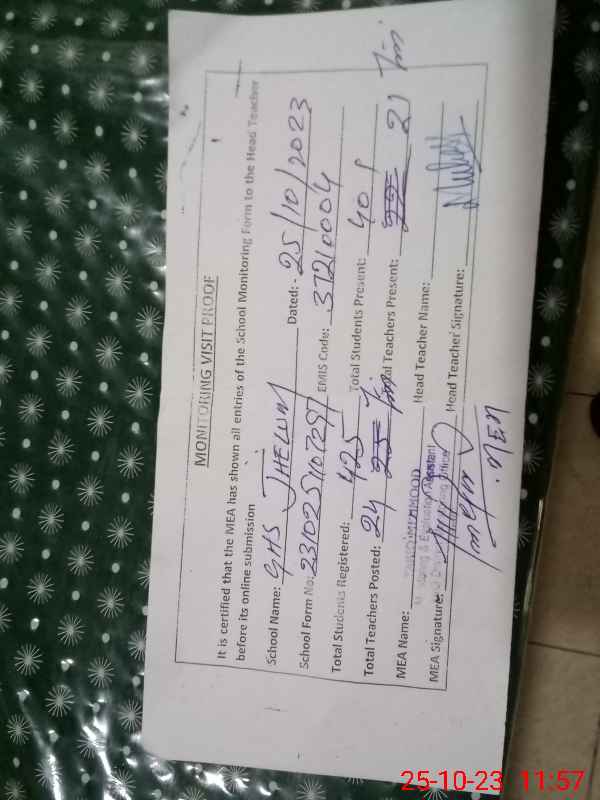 MONITORING VISIT PROOF
It is certified that the MEA has shown all entries of the School Monitoring Form to the Head Teacher
before its online submission
School Name: GHS JHELUM Dated:- 25/10/2023
School Form No: EMIS Code: 37210004
Total Students Registered: 425 Total Students Present: 401
Total Teachers Posted: 24 Total Teachers Present: 21
MEA Name: Head Teacher Name:
Monitoring & Evaluation Assistant
MEA Signature: Head Teacher Signature:
25-10-23 11:57